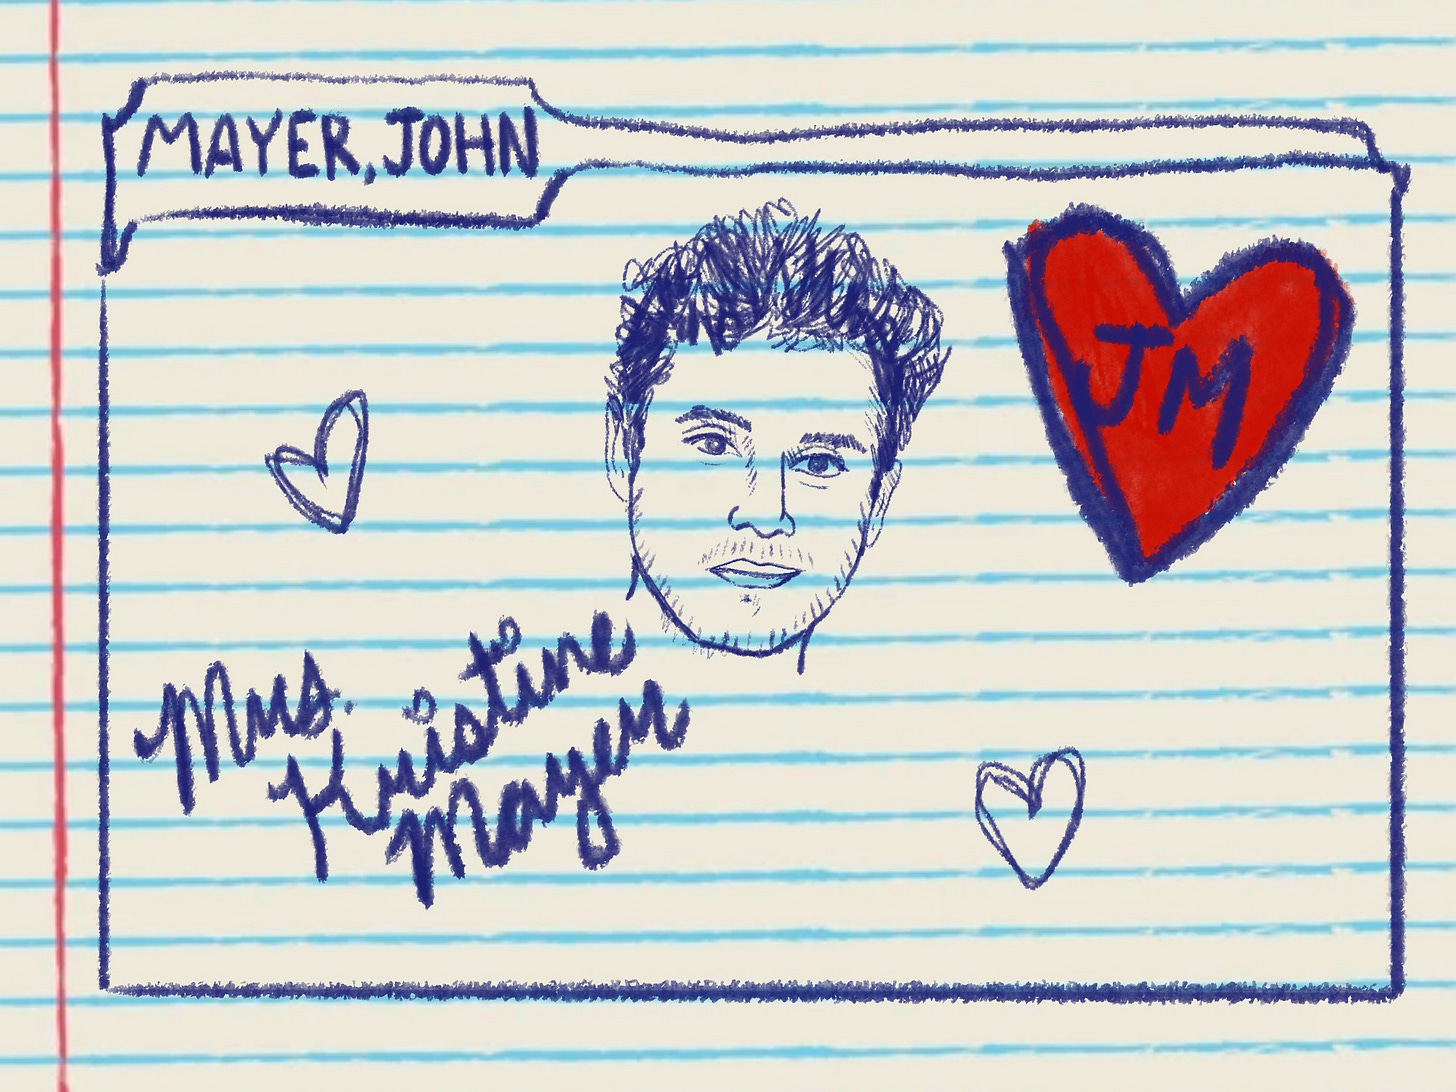 MAYER, JOHN
JM
Mrs.
Kristine
Mayer